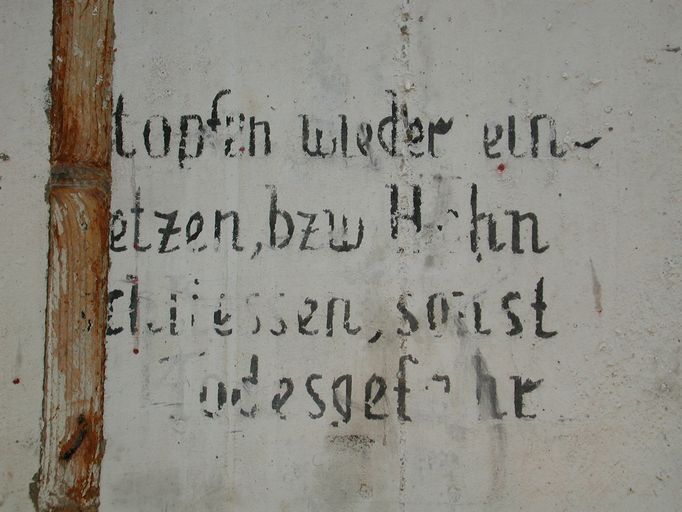 topfen wieder ein-
etzen, bzw Hahn
chliessen, sonst
Todesgefahr